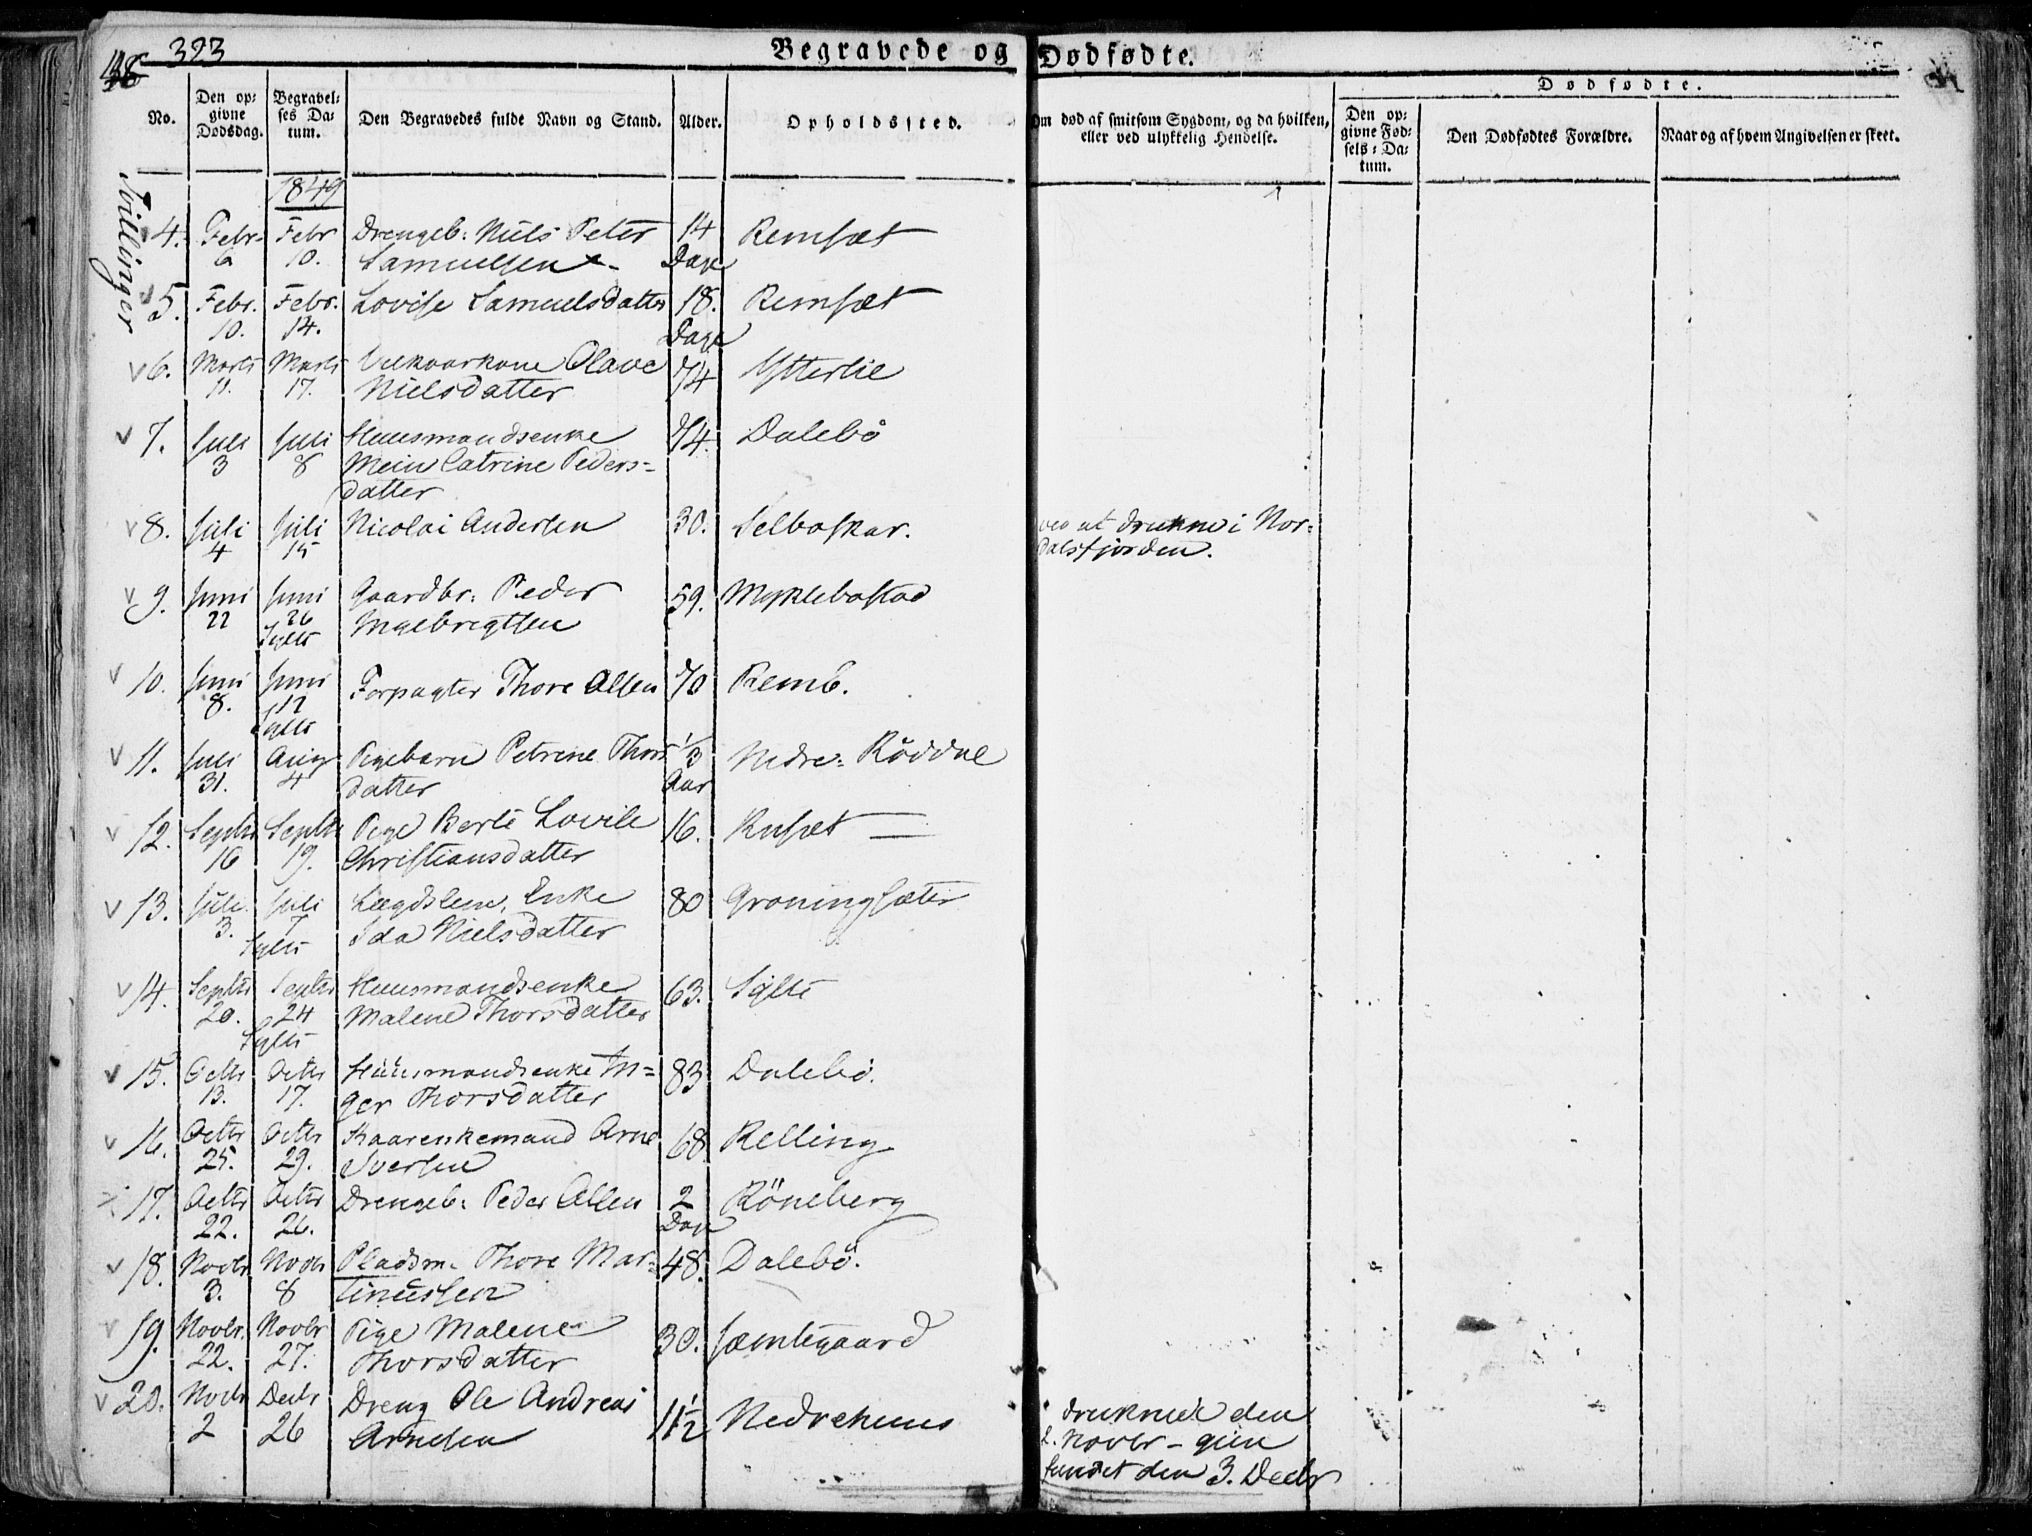 323
Begravede og Dødfødte.
No. Den opgivne Dødsdag. Begravelses Datum. Den Begravedes fulde Navn og Stand. Alder. Opholdssted. Om død af smitsom Sygdom, og da hvilken, eller ved ulykkelig Hendelse. Dødfødte. Den opgivne Fødsels-Datum. Den Dødfødtes Forældre. Naar og af hvem Angivelsen er skeet.
1849
Tvillinger
4. Febr. Febr Drengeb: Niels Peter 14 Remsæt
6 10. Samuelsen Dage
5. Febr. Febr. Lovise Samuelsdatter 18. Remsæt
10. 14. Dage
6. Marts Marts Velkaarkone Olave 74 Ytterlie
11. 17. Nielsdatter
7. Juli Juli Huusmandsenke 74. Dalebø
3 8 Catrine Peders=
datter
8. Juli Juli Nicolai Andersen 30. Selboskar. ved at drukne i Nor=
4 15 dalsfjorden.
9. Juni Juni Gaardbr: Peder 59. Myklebostad
22 26 Ingebrigtsen
Sylte
10. Juni Juni Forpagter Thore Olsen 70 Remb.
8. 12
Sylte
11. Juli Aug Pigebarn Petrine Thors 1/3 Nedre: Røddal
31. 4 datter Aar
12. Septbr Septbr Pige Berte Lovise 16. Rusæt
16 19. Christiansdatter
13. Juli Juli Lægdslem, Enke 80 Groningsæter
3. 7 Ida Nielsdatter
Sylte
14. Septbr Septbr Huusmandsenke 63. Sylte
20. 24 Malene Thorsdatter
Sylte
15. Octbr Octbr Huusmandsenke In= 83 Dalebø.
13. 17. ger Thorsdatter
16. Octbr Octbr Kaarenkemand Arne 68 Relling
25. 29. Iversen
17. Octbr Octbr Drengeb: Peder Olsen 2 Røneberg
22. 26. Dage
18. Novbr Novbr Pladsm. Thore Mar= 48. Dalebø.
3. 8 tinussen
19. Novbr. Novbr Pige Malene 30. Jæmtegaard
22. 27. Thorsdatter
20. Novbr Decbr Dreng Ole Andreas 11½ Nedrehuus druknede den
2 26 Arnesen 2. Novbr - gien
fundet den 3. Decbr